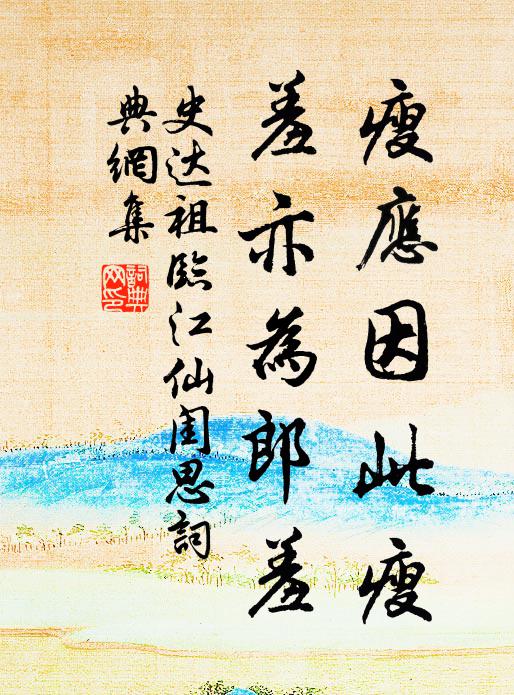 瘦應因此瘦
羞亦為郎羞
史达祖臨江仙闺思詞
典網集
詞典網印